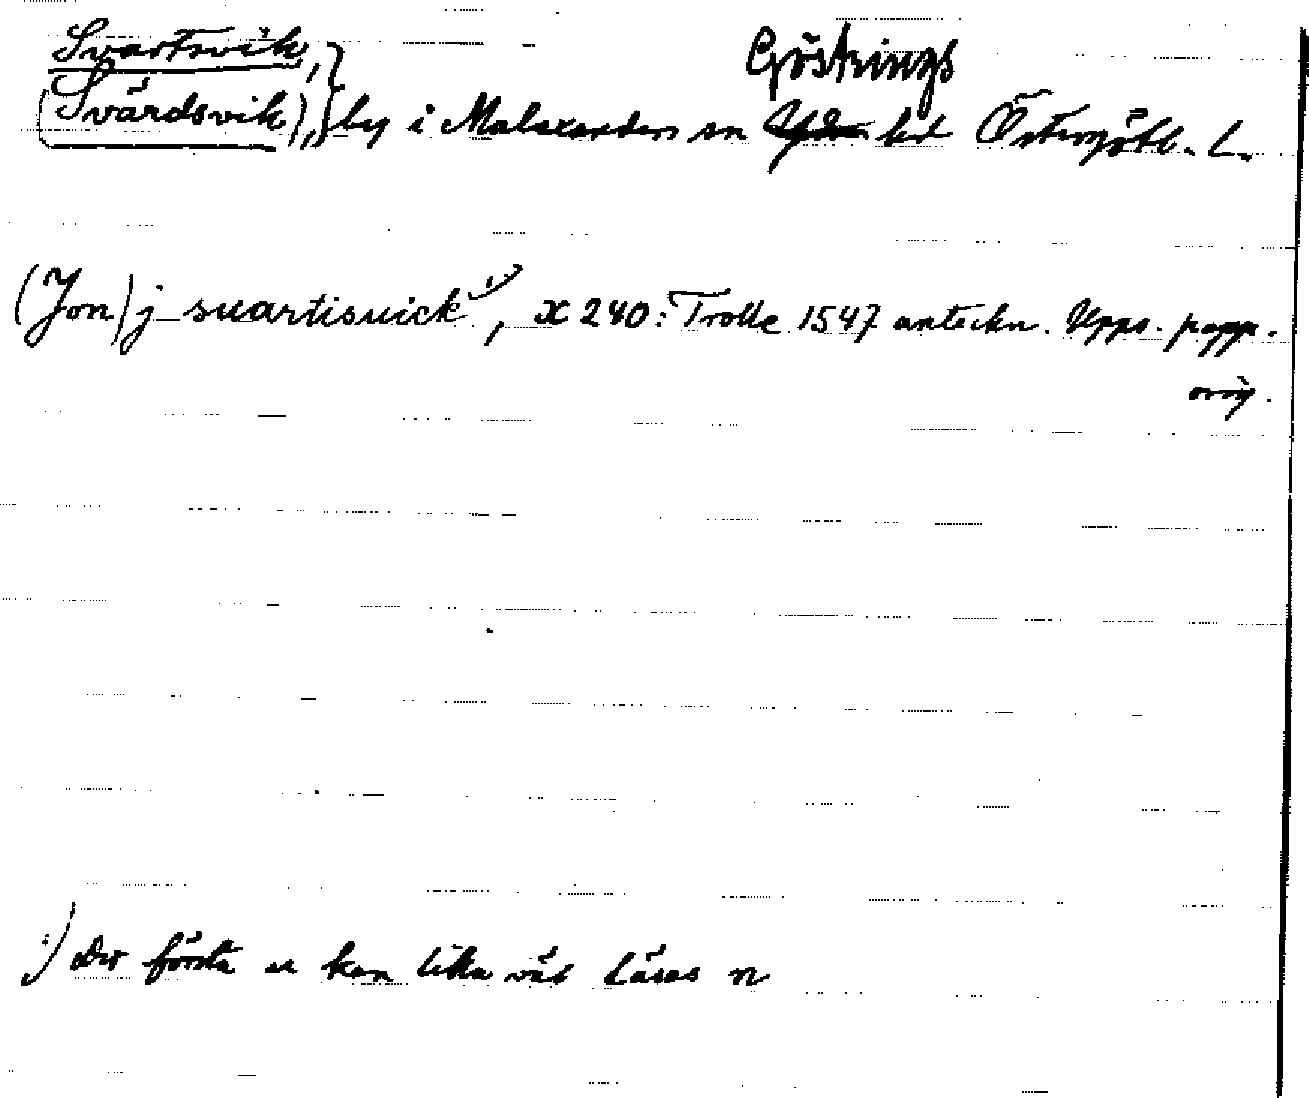 Svartsvik, }
Göstrings
(Svärdsvik), } by i Malexanders sn Ydre hd Östergötl. L.
(Jon) j suartisuick ¹), X 240: Trolle 1547 anteckn. Upps. papp.
orig.
¹) Det första u kan lika väl läsas n